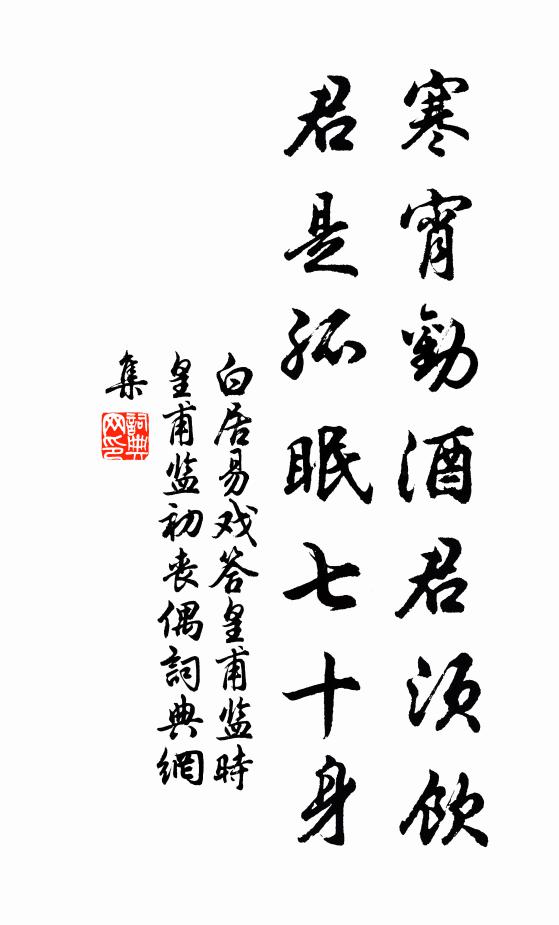 寒宵勸酒君须飲
君是孤眠七十身
白居易戏答皇甫监時
皇甫监初丧偶詞典網
集
詞典
网印